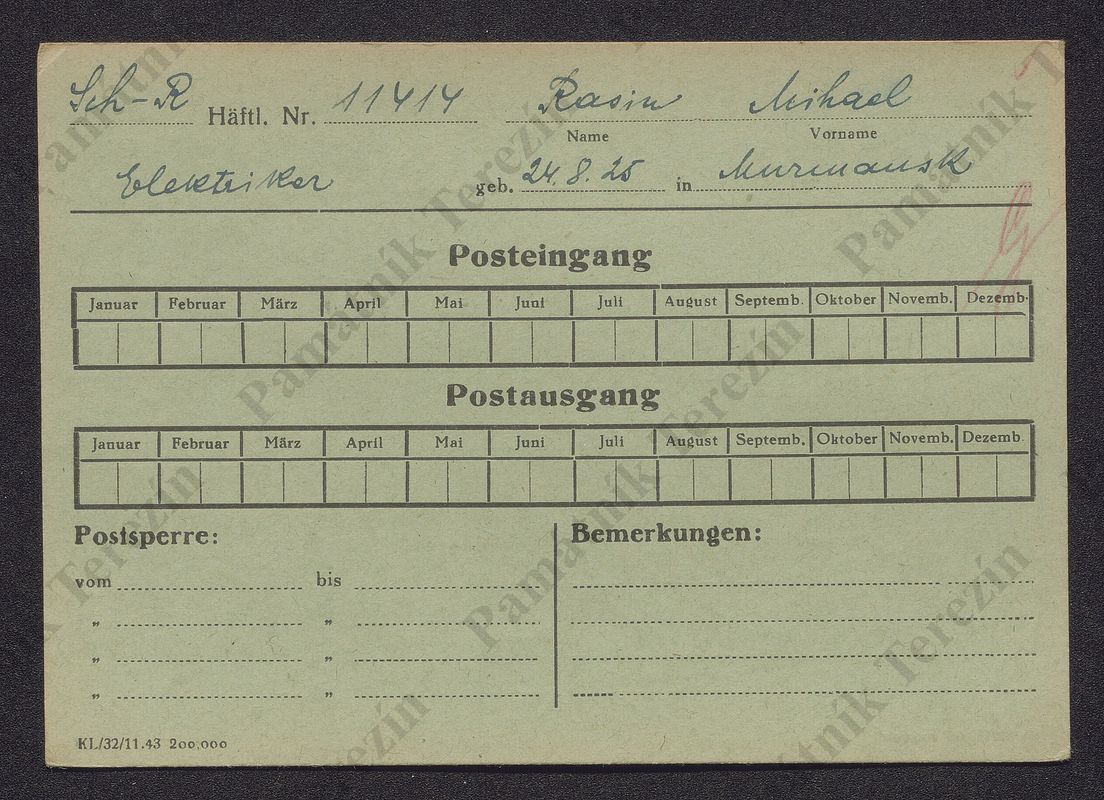 Sch-R Häftl. Nr. 11414 Rasin Mihael
Name Vorname
Elektriker geb. 24.8.25 in Murmansk
Posteingang
Januar Februar März April Mai Juni Juli August Septemb. Oktober Novemb. Dezemb.
Postausgang
Januar Februar März April Mai Juni Juli August Septemb. Oktober Novemb. Dezemb.
Postsperre: Bemerkungen:
vom bis
„ „
„ „
„ „
KL/32/11.43 200,000
Památník Terezín